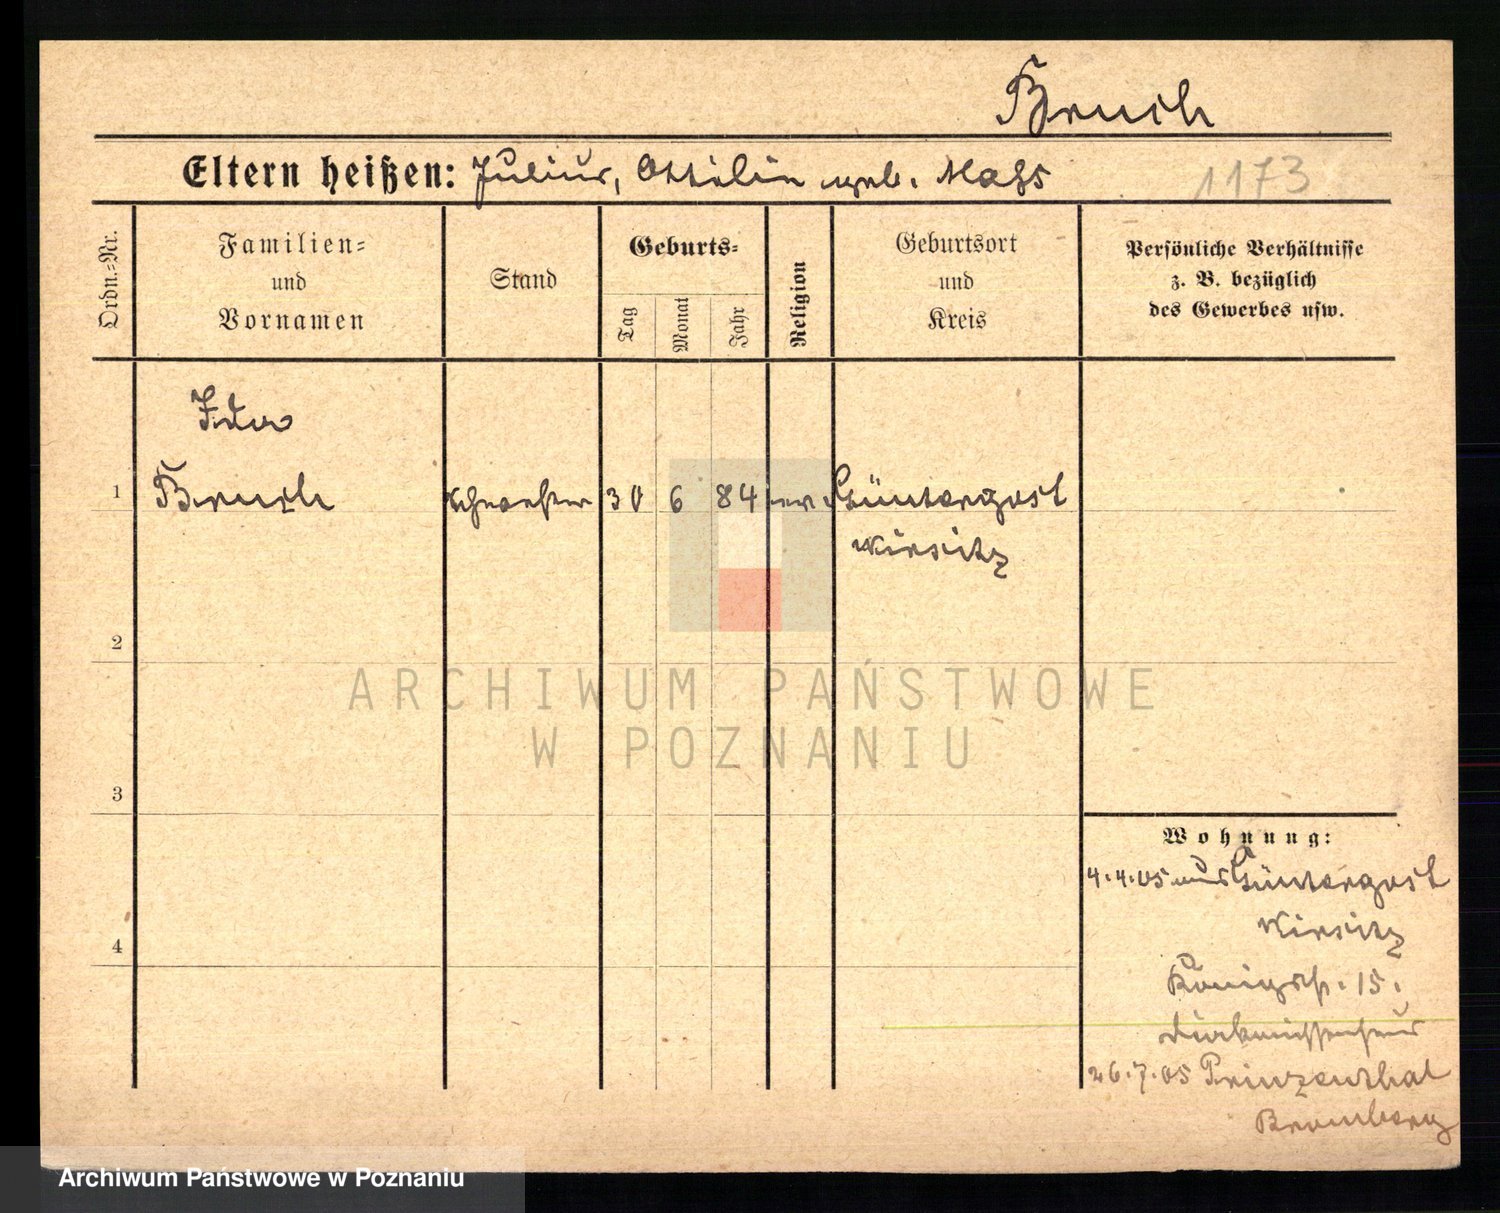 Bruch
Eltern heißen: Julius, Ottilie geb. Maß
1173
Ordn.-Nr.
Familien-
und
Vornamen
Stand
Geburts-
Tag
Monat
Jahr
Religion
Geburtsort
und
Kreis
Persönliche Verhältnisse
z. B. bezüglich
des Gewerbes usw.
Ida
1 Bruch Schwester 30 6 84 ev. Güntergost
Wirsitz
2
3
4
Wohnung:
4.4.05 aus Güntergost
Wirsitz
Königstr. 15.
Diakonissenhaus
26.7.05 Prinzenthal
Bromberg
ARCHIWUM PAŃSTWOWE
W POZNANIU
Archiwum Państwowe w Poznaniu